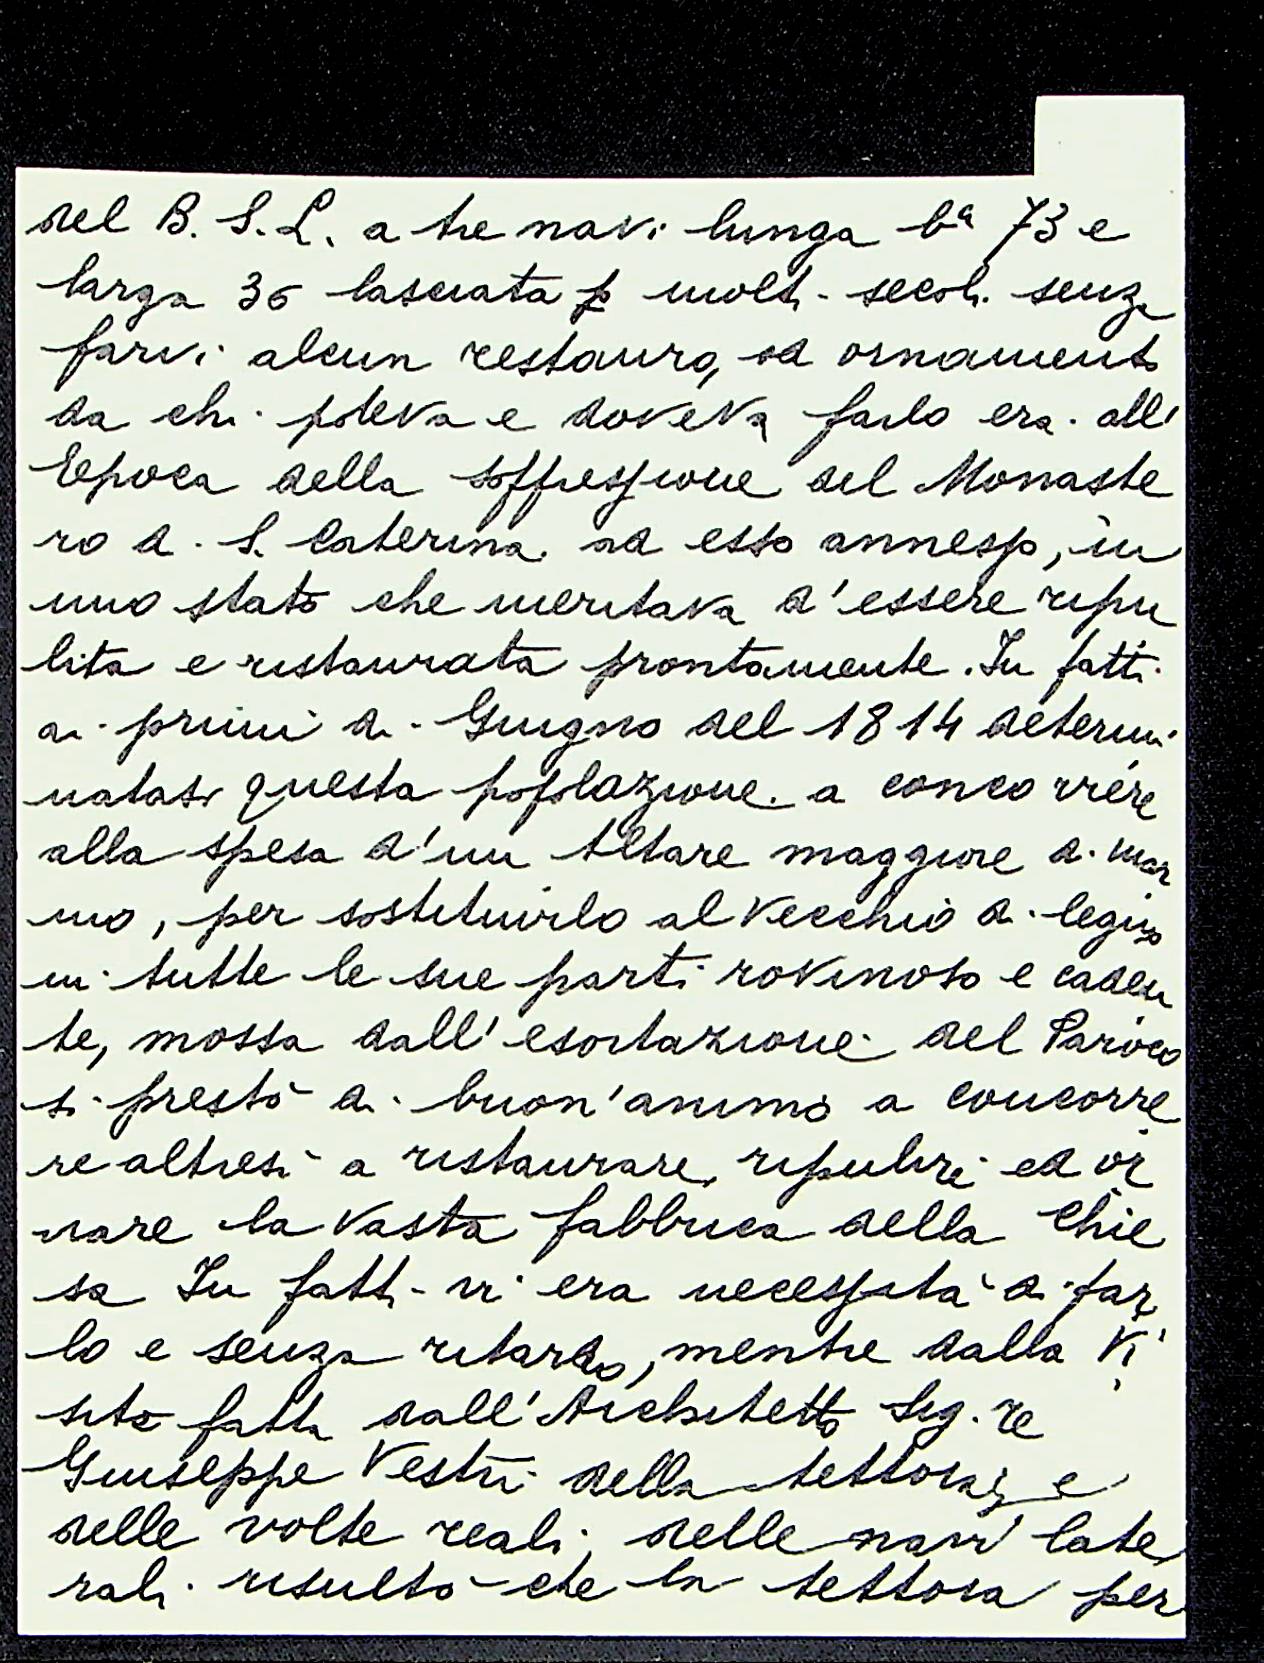 del B. S. L. a tre navi lunga bª 73 e
larga 36 lasciata p molti secoli senza
farvi alcun restauro, od ornamento
da chi poteva e doveva farlo era all'
Epoca della soffressione del Monaste
ro di S. Caterina ad esso annesso, in
uno stato che meritava d'essere ripu
lita e ristaurata prontamente. In fatti
ai primi di Giugno del 1814 determi
natasi questa popolazione a concorrere
alla spesa d'un Altare maggiore di mar
mo, per sostituirlo al vecchio di legno
in tutte le sue parti rovinoso e caden
te, mossa dall'esortazione del Paroco
si prestò di buon'animo a concorre
re altresì a ristaurare, ripulire ed or
nare la vasta fabbrica della Chie
sa In fatti vi era necessità di far
lo e senza ritardo, mentre dalla Vi
sita fatta dall'Architetto Sig.re
Giuseppe Vestri della tettoia, e
delle volte reali delle navi late
rali risultò che la tettoia per